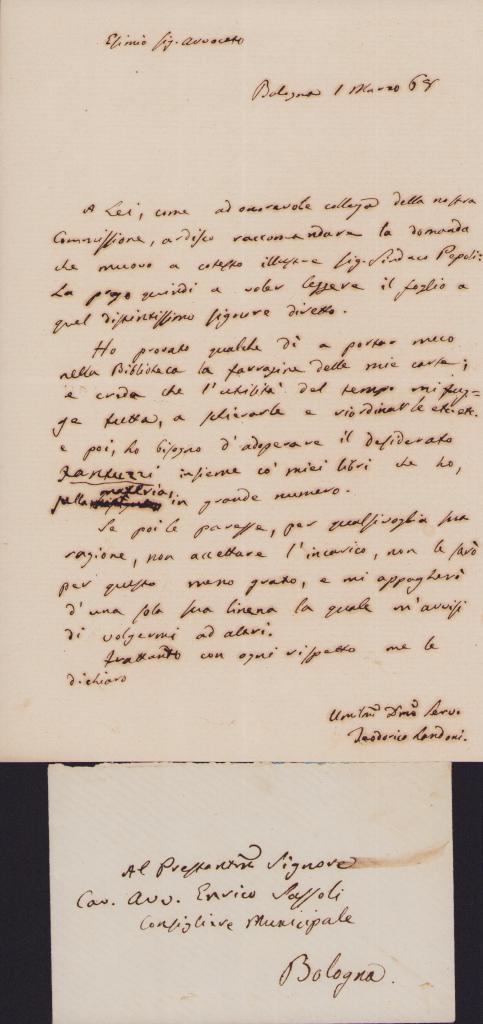 Esimio Sig. Avvocato
Bologna 1 Marzo 68
A Lei, come ad onorevole collega della nostra
Commissione, ardisco raccomandare la domanda
che muovo a cotesto illustre Sig. Sindaco Pepoli:
La prego quindi a voler leggere il foglio a
quel distintissimo signore diretto.
Ho provato qualche dì a portar meco
nella Biblioteca la farragine delle mie carte;
e creda che l'utilità del tempo mi fug=
ge tutta, a schierarle e riordinarle etc. etc.
e poi, ho bisogno d'adoperare il desiderato
Fantuzzi insieme co' miei libri che ho,
sulla materia, in grande numero.
Se poi le paresse, per qualsivoglia sua
ragione, non accettare l'incarico, non le sarò
per questo meno grato, e mi appagherò
d'una sola sua linea la quale m'avvisi
di volgermi ad altri.
Frattanto con ogni rispetto me le
dichiaro
Umilmo Dmo Servo.
Teodorico Landoni.
Al Prestantmo Signore
Cav. Avv. Enrico Sassoli
Consigliere Municipale
Bologna.